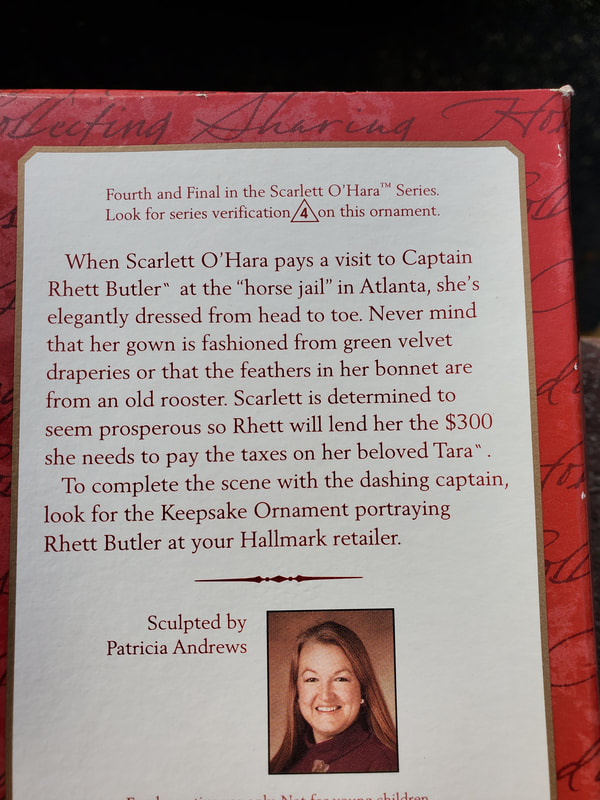 Collecting Sharing Ho
Fourth and Final in the Scarlett O'Hara™ Series.
Look for series verification 4 on this ornament.
When Scarlett O'Hara pays a visit to Captain
Rhett Butler™ at the "horse jail" in Atlanta, she's
elegantly dressed from head to toe. Never mind
that her gown is fashioned from green velvet
draperies or that the feathers in her bonnet are
from an old rooster. Scarlett is determined to
seem prosperous so Rhett will lend her the $300
she needs to pay the taxes on her beloved Tara™.
To complete the scene with the dashing captain,
look for the Keepsake Ornament portraying
Rhett Butler at your Hallmark retailer.
Sculpted by
Patricia Andrews